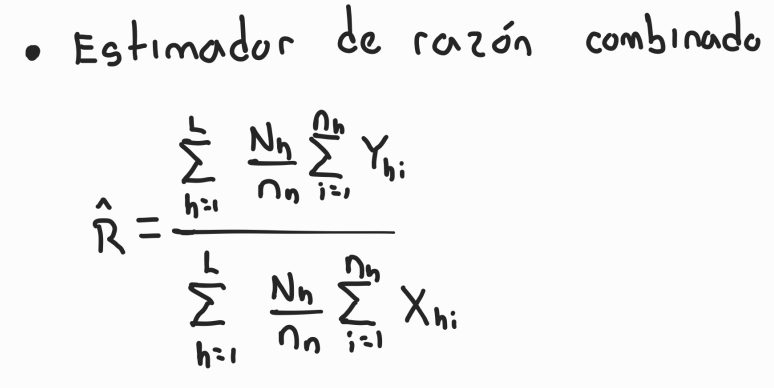 • Estimador de razón combinado
R̂ = \frac{\sum_{h=1}^{L} \frac{N_h}{n_h} \sum_{i=1}^{n_h} Y_{hi}}{\sum_{h=1}^{L} \frac{N_h}{n_h} \sum_{i=1}^{n_h} X_{hi}}